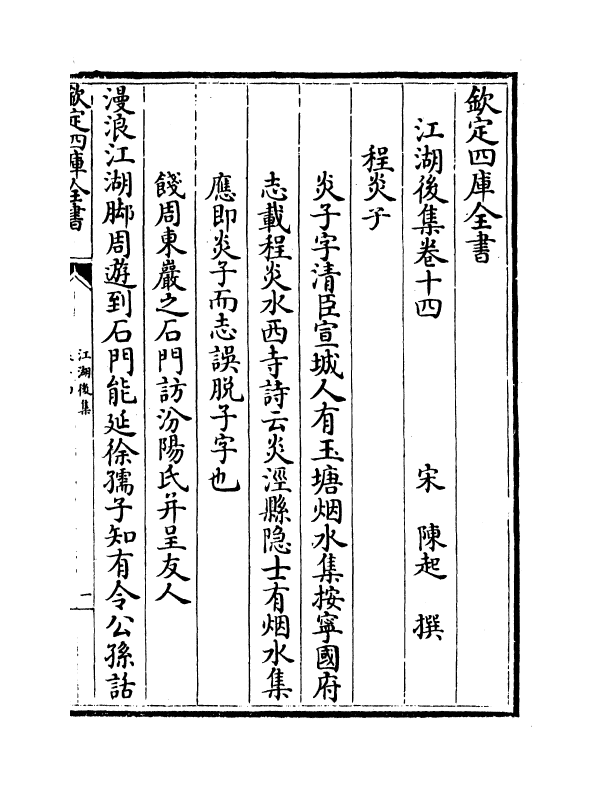 欽定四庫全書
江湖後集卷十四
宋 陳起 撰
程炎子
炎子字清臣宣城人有玉塘烟水集按寧國府
志載程炎水西寺詩云炎涇縣隐士有烟水集
應即炎子而志誤脱子字也
餞周東巖之石門訪汾陽氏并呈友人
漫浪江湖脚周遊到石門能延徐孺子知有令公孫話
欽定四庫全書
江湖後集
一